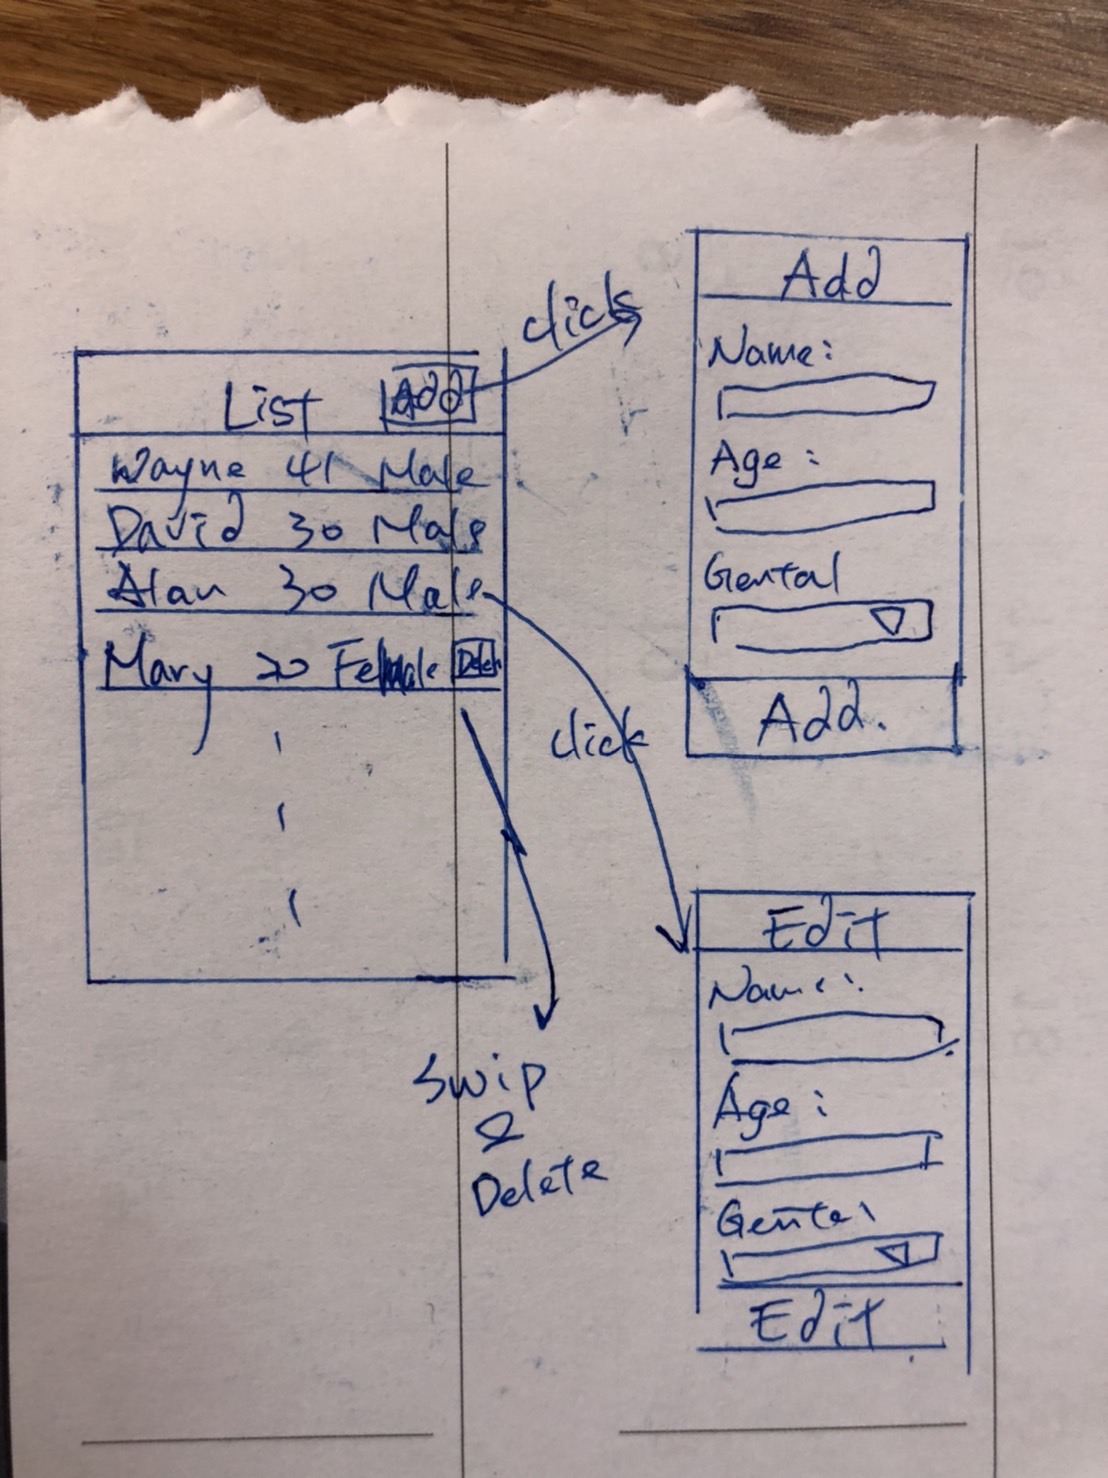 List Add
Wayne 41 Male
David 30 Male
Alan 30 Male
Mary 20 Female Delete
click
Add
Name:
Age:
Gental
Add.
click
Swip
&
Delete
Edit
Name:
Age:
Edit